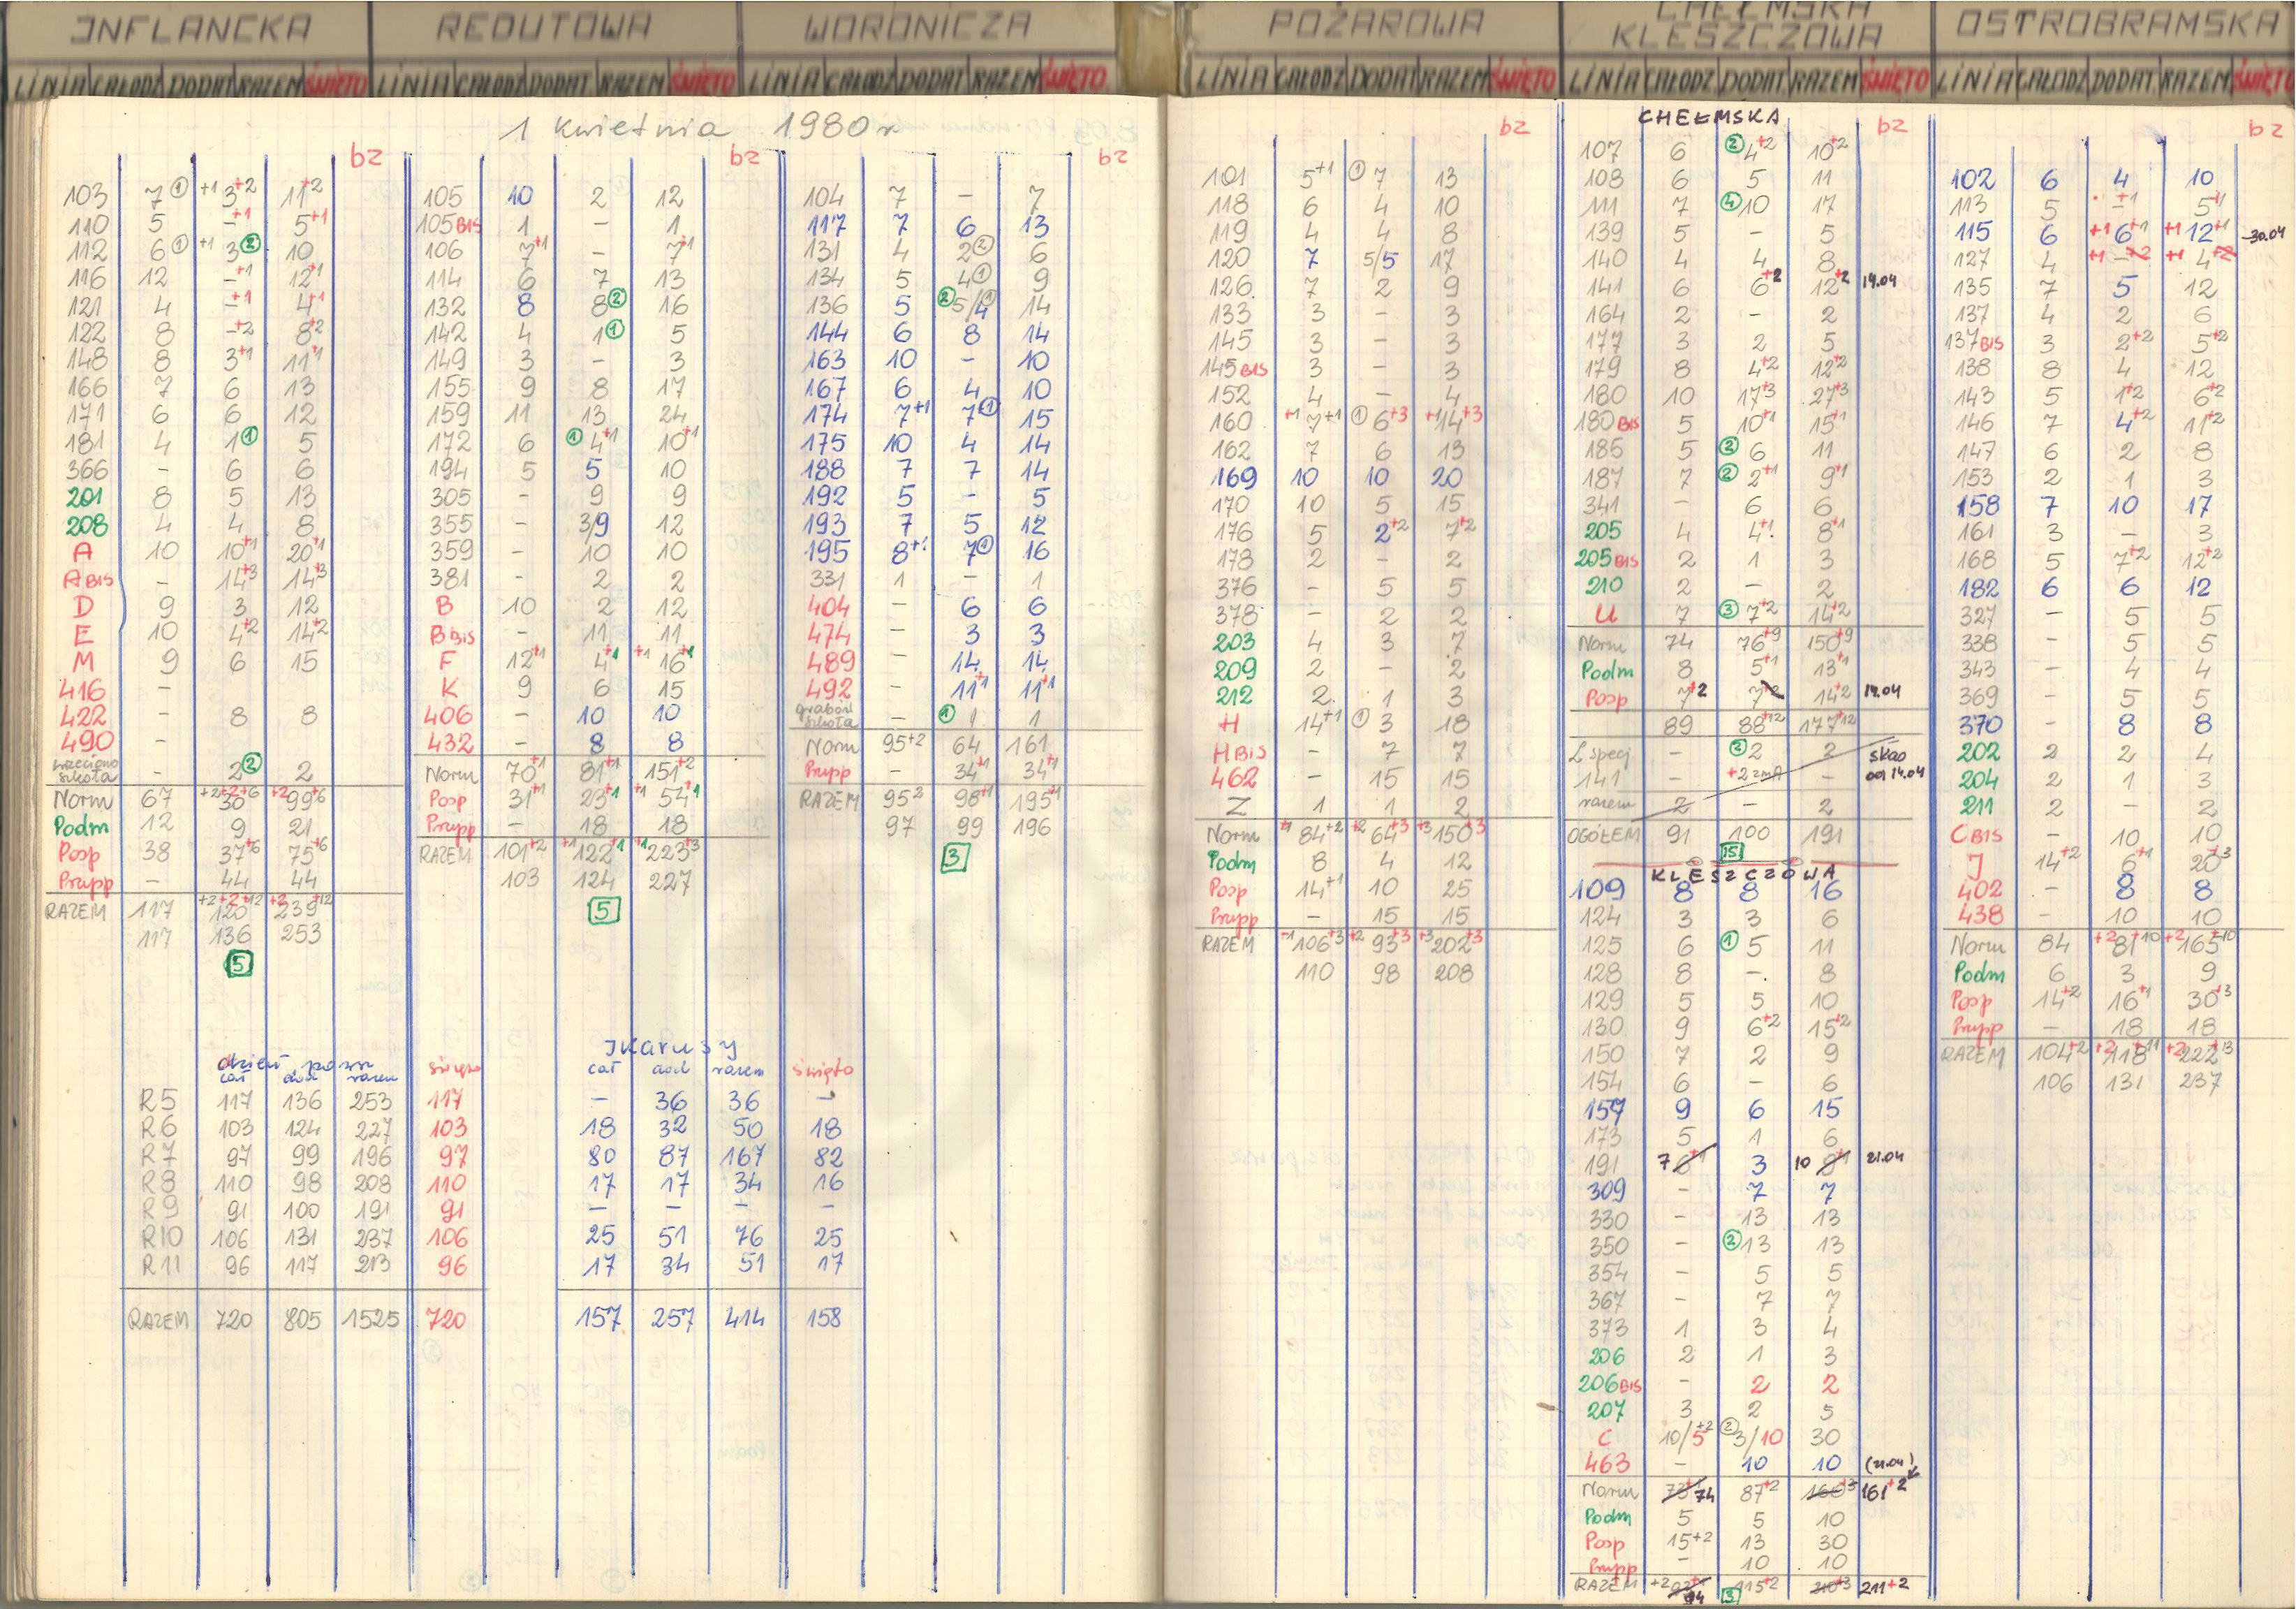 INFLANCKA
LINIA CAŁODZ DODAT RAZEM ŚWIĘTO
REDUTOWA
LINIA CAŁODZ DODAT RAZEM ŚWIĘTO
WORONICZA
LINIA CAŁODZ DODAT RAZEM ŚWIĘTO
POŻAROWA
LINIA CAŁODZ DODAT RAZEM ŚWIĘTO
CHEŁMSKA
KLESZCZOWA
LINIA CAŁODZ DODAT RAZEM ŚWIĘTO
OSTROBRAMSKA
LINIA CAŁODZ DODAT RAZEM ŚWIĘTO
1 kwietnia 1980 r
bz
103 7 ① +1 3+2 11+2
110 5 -+1 5+1
112 6 ① +1 3 ② 10
116 12 -+1 12+1
121 4 -+1 4+1
122 8 -+2 8+2
148 8 3+1 11+1
166 7 6 13
171 6 6 12
181 4 1 ① 5
366 - 6 6
201 8 5 13
208 4 4 8
A 10 10+1 20+1
A BIS - 14+3 14+3
D 9 3 12
E 10 4+2 14+2
M 9 6 15
416 -
422 - 8 8
490 -
szkoła - 2 ② 2
Norm 67 +2+2+6 30 +2 99+6
Podm 12 9 21
Posp 38 37+6 75+6
Prupp - 44 44
RAZEM 117 +2+2+12 120 +2 239+12
117 136 253
5
bz
105 10 2 12
105 BIS 1 - 1
106 7+1 - 7+1
114 6 7 13
132 8 8 ② 16
142 4 1 ① 5
149 3 - 3
155 9 8 17
159 11 13 24
172 6 ① 4+1 10+1
194 5 5 10
305 - 9 9
355 - 3/9 12
359 - 10 10
381 - 2 2
B 10 2 12
B BIS - 11 11
F 12+1 4+1 +1 16+1
K 9 6 15
406 - 10 10
432 - 8 8
Norm 70+1 81+1 151+2
Posp 31+1 23+1 +1 54+1
Prupp - 18 18
RAZEM 101+2 +1 122+1 +1 223+3
103 124 227
5
bz
104 7 - 7
117 7 6 13
131 4 2 ② 6
134 5 4 ① 9
136 5 ② 5/4 ① 14
144 6 8 14
163 10 - 10
167 6 4 10
174 7+1 7 ① 15
175 10 4 14
188 7 7 14
192 5 - 5
193 7 5 12
195 8+1 7 ① 16
331 1 - 1
404 - 6 6
474 - 3 3
489 - 14 14
492 - 11+1 11+1
Grabów
szkoła - ① 1 1
Norm 95+2 64 161
Prupp - 34+1 34+1
RAZEM 95+2 98+1 195+1
97 99 196
3
dzień powsz
cał dod razem święto
R5 117 136 253 117
R6 103 124 227 103
R7 97 99 196 97
R8 110 98 208 110
R9 91 100 191 91
R10 106 131 237 106
R11 96 117 213 96
RAZEM 720 805 1525 720
Ikarusy
cał dod razem święto
- 36 36 -
18 32 50 18
80 87 167 82
17 17 34 16
- - - -
25 51 76 25
17 34 51 17
157 257 414 158
bz
101 5+1 ① 7 13
118 6 4 10
119 4 4 8
120 7 5/5 17
126 7 2 9
133 3 - 3
145 3 - 3
145 BIS 3 - 3
152 4 - 4
160 +1 7+1 ① 6+3 +1 14+3
162 7 6 13
169 10 10 20
170 10 5 15
176 5 2+2 7+2
178 2 - 2
376 - 5 5
378 - 2 2
203 4 3 7
209 2 - 2
212 2 1 3
H 14+1 ① 3 18
H BIS - 7 7
462 - 15 15
Z 1 1 2
Norm +1 84+2 +2 64+3 +3 150+3
Podm 8 4 12
Posp 14+1 10 25
Prupp - 15 15
RAZEM +1 106+3 +2 93+3 +3 202+3
110 98 208
CHEŁMSKA
bz
107 6 ② 4+2 10+2
108 6 5 11
111 7 ④ 10 17
139 5 - 5
140 4 4 8
141 6 6+2 12+2 14.04
164 2 - 2
177 3 2 5
179 8 4+2 12+2
180 10 17+3 27+3
180 BIS 5 10+1 15+1
185 5 ② 6 11
187 7 ② 2+1 9+1
341 - 6 6
205 4 4+1 8+1
205 BIS 2 1 3
210 2 - 2
U 7 ③ 7+2 14+2
Norm 74 76+9 150+9
Podm 8 5+1 13+1
Posp 7+2 7+2 14+2 14.04
89 88+12 177+12
L specj - ② 2 2 skas
141 - +2 zmA - od 14.04
razem 2 - 2
OGÓŁEM 91 100 191
15
KLESZCZOWA
109 8 8 16
124 3 3 6
125 6 ① 5 11
128 8 - 8
129 5 5 10
130 9 6+2 15+2
150 7 2 9
154 6 - 6
157 9 6 15
173 5 1 6
191 7 6+1 3 10 9+1 21.04
309 - 7 7
330 - 13 13
350 - ② 13 13
354 - 5 5
367 - 7 7
373 1 3 4
206 2 1 3
206 BIS - 2 2
207 3 2 5
C 10/5+2 ② 3/10 30
463 - 10 10 (21.04)
Norm 73+1 74 87+2 160+3 161+2
Podm 5 5 10
Posp 15+2 13 30
Prupp - 10 10
RAZEM +2 94 115+2 210+3 211+2
3
bz
102 6 4 10
113 5 -+1 5+1
115 6 +1 6+1 +1 12+1 -30.04
127 4 +1 -+2 +1 4+2
135 7 5 12
137 4 2 6
137 BIS 3 2+2 5+2
138 8 4 12
143 5 1+2 6+2
146 7 4+2 11+2
147 6 2 8
153 2 1 3
158 7 10 17
161 3 - 3
168 5 7+2 12+2
182 6 6 12
327 - 5 5
338 - 5 5
343 - 4 4
369 - 5 5
370 - 8 8
202 2 2 4
204 2 1 3
211 2 - 2
C BIS - 10 10
J 14+2 6+1 20+3
402 - 8 8
438 - 10 10
Norm 84 +2 81+10 +2 165+10
Podm 6 3 9
Posp 14+2 16+1 30+3
Prupp - 18 18
RAZEM 104+2 +2 118+11 +2 222+13
106 131 237